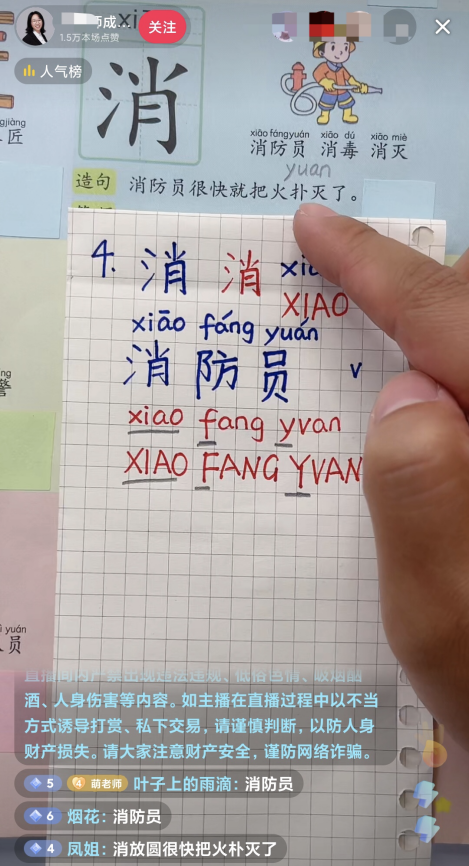 师成...
1.5万本场点赞
关注
人气榜
消
xiāo fángyuán xiāo dú xiāo miè
消防员 消毒 消灭
yuan
造句 消防员很快就把火扑灭了。
匠
4. 消 消
XIAO
xiāo fáng yuán
消防员 v
警
xiao fang yvan
XIAO FANG YVAN
yuán
人员
酒、人身伤害等内容。如主播在直播过程中以不当
方式诱导打赏、私下交易，请谨慎判断，以防人身
财产损失。请大家注意财产安全，谨防网络诈骗。
5 4 萌老师 叶子上的雨滴：消防员
6 烟花：消防员
4 凤姐：消放圆很快把火朴灭了